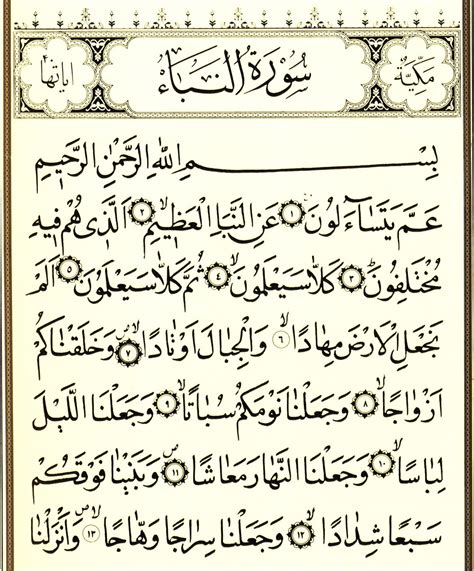 مكية
سورة النباء
اياتها ٤٠
بسم الله الرحمن الرحيم
عَمَّ يَتَسَاءَلُونَ ١ عَنِ النَّبَإِ الْعَظِيمِ ٢ اَلَّذِي هُمْ فِيهِ
مُخْتَلِفُونَ ٣ كَلَّا سَيَعْلَمُونَ ٤ ثُمَّ كَلَّا سَيَعْلَمُونَ ٥ اَلَمْ
نَجْعَلِ الْاَرْضَ مِهَادًا ٦ وَالْجِبَالَ اَوْتَادًا ٧ وَخَلَقْنَاكُمْ
اَزْوَاجًا ٨ وَجَعَلْنَا نَوْمَكُمْ سُبَاتًا ٩ وَجَعَلْنَا اللَّيْلَ
لِبَاسًا ١٠ وَجَعَلْنَا النَّهَارَ مَعَاشًا ١١ وَبَنَيْنَا فَوْقَكُمْ
سَبْعًا شِدَادًا ١٢ وَجَعَلْنَا سِرَاجًا وَهَّاجًا ١٣ وَاَنْزَلْنَا